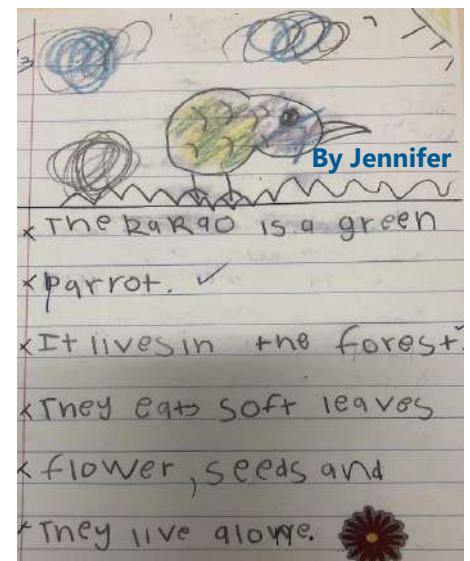 By Jennifer
The kakao is a green
parrot. ✓
It lives in the forest.
They eats soft leaves
flower, seeds and
They live alone.